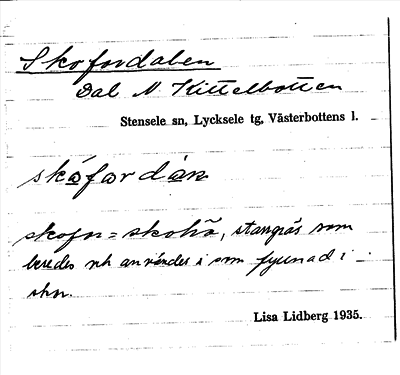 Skofordalen
Dal N. Kittelbotten
Stensele sn, Lycksele tg, Västerbottens l.
skåfordáɷn
skofor = skohö, starrgräs som
beredes och användes i som fyllnad i
skor.
Lisa Lidberg 1935.